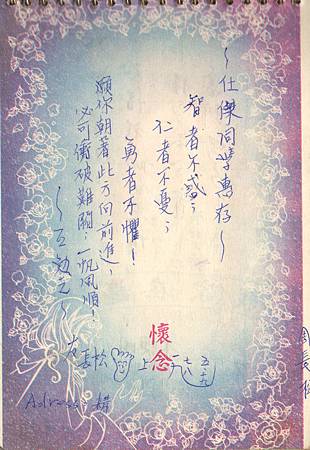 ～仕傑同學惠存～
智者不惑；
仁者不憂；
勇者不懼！
願你朝著此方向前進，
必可衝破難關；一帆風順！
～互勉之～
友
上
懷念